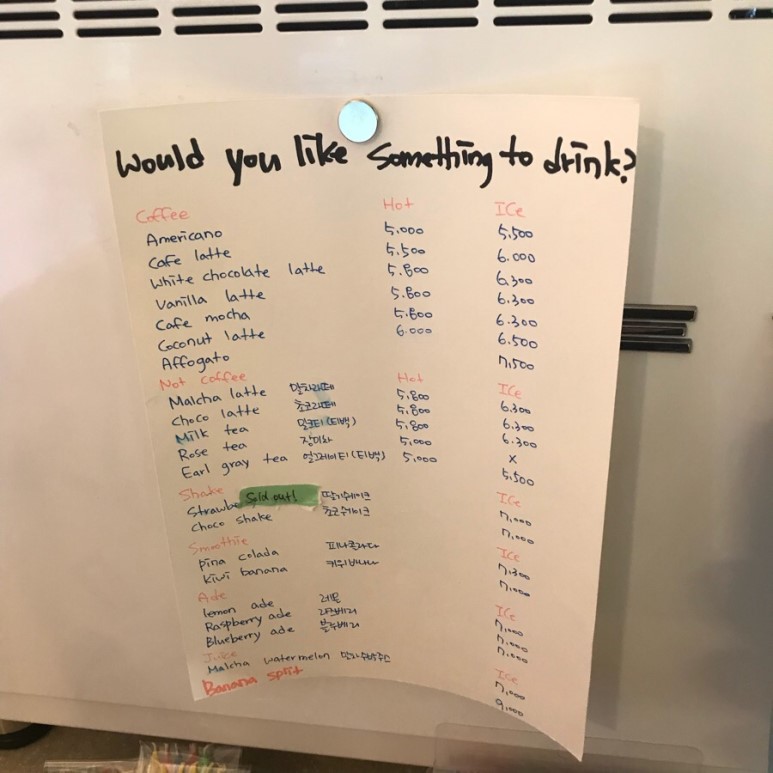 Would you like something to drink?
Coffee Hot ICe
Americano 5.000 5.500
Cafe latte 5.500 6.000
White chocolate latte 5.800 6.300
Vanilla latte 5.800 6.300
Cafe mocha 5.800 6.300
Coconut latte 6.000 6.500
Affogato 7.500
Not coffee Hot ICe
Malcha latte 말차라떼 5.800 6.300
Choco latte 초코라떼 5.800 6.300
Milk tea 밀크티(티백) 5.800 6.300
Rose tea 장미차 5,000 x
Earl gray tea 얼그레이티(티백) 5,000 5,500
Shake ICe
Strawbe Sold out! 딸기쉐이크 7,000
Choco shake 초코쉐이크 7,000
Smoothie ICe
pina colada 피나콜라다 7,300
kiwi banana 키위바나나 7,000
Ade ICe
lemon ade 레몬 7,000
Raspberry ade 라즈베리 7,000
Blueberry ade 블루베리 7,000
Juice ICe
Malcha watermelon 말차수박주스 7,000
Banana split 9,000